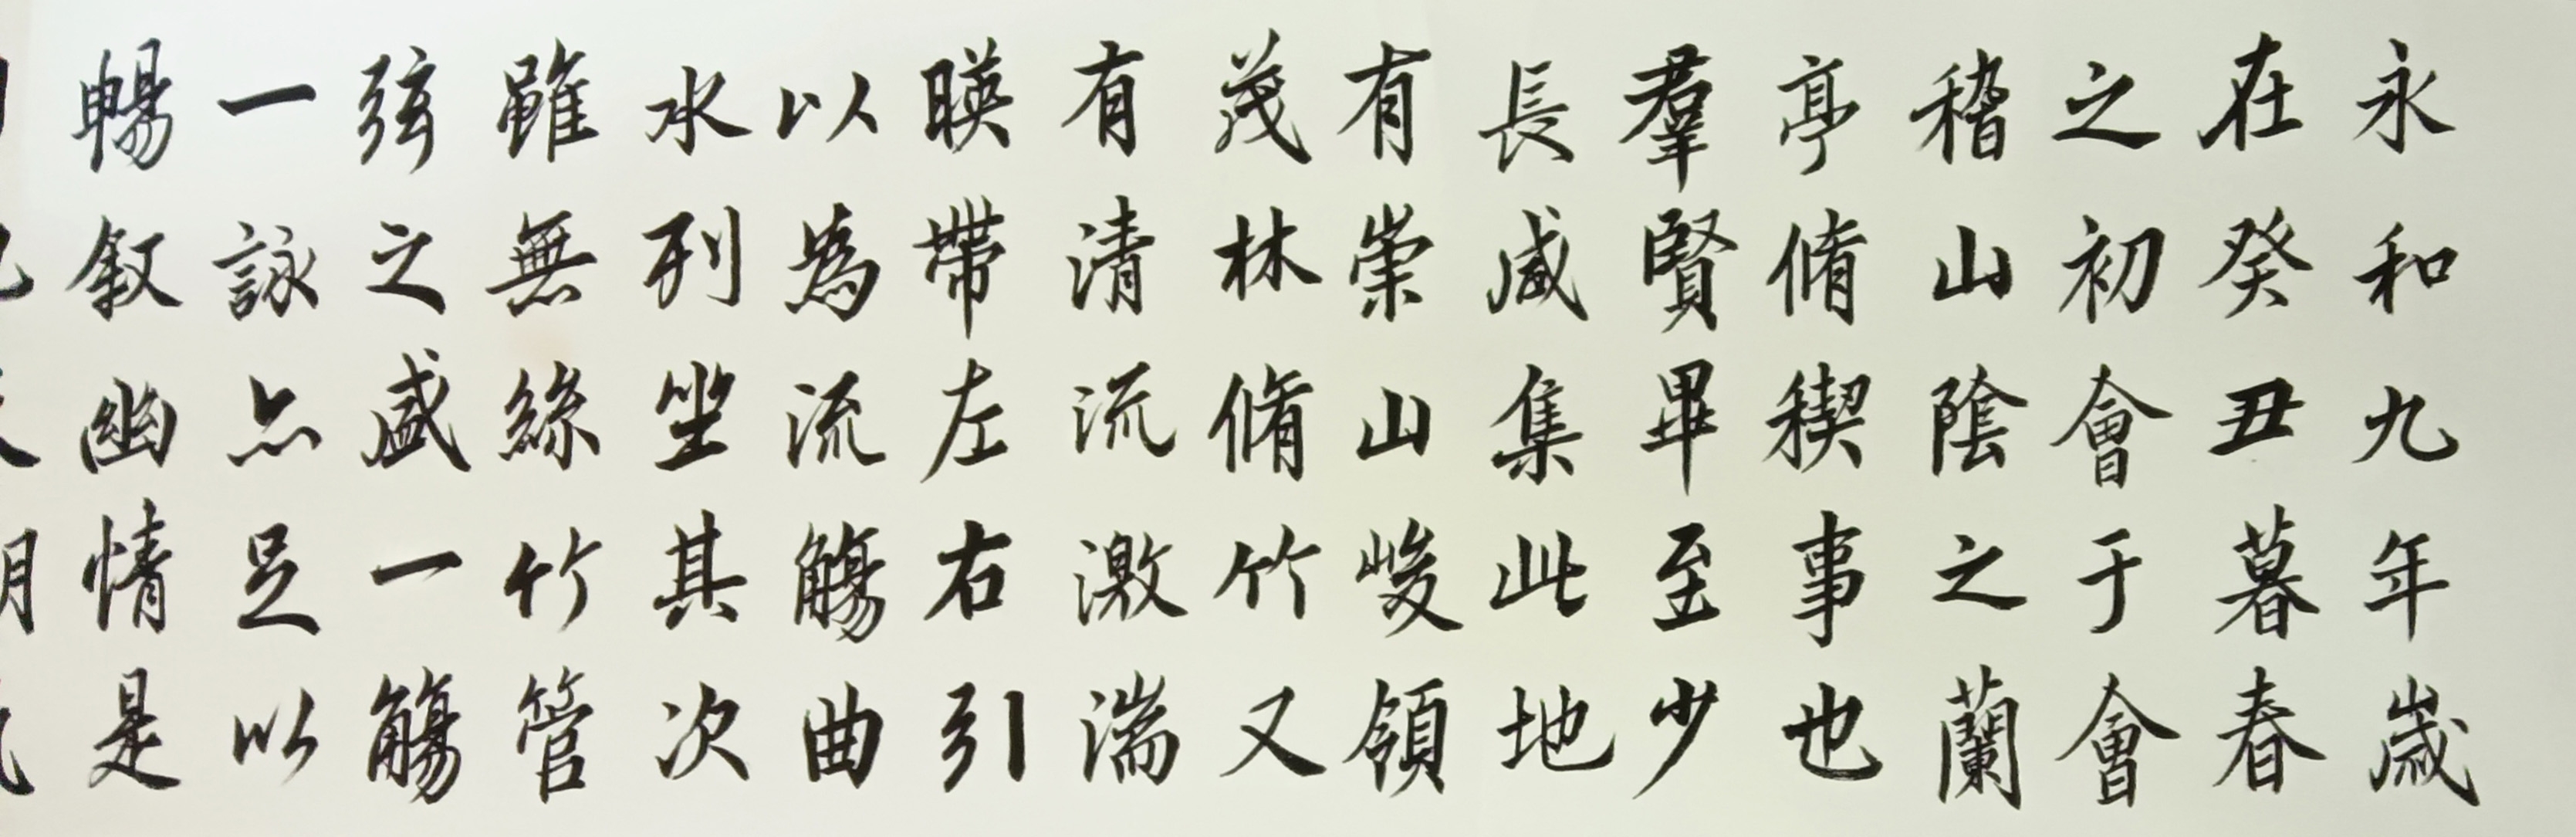 永和九年歲
在癸丑暮春
之初會于會
稽山陰之蘭
亭脩稧事也
羣賢畢至少
長咸集此地
有崇山峻領
茂林脩竹又
有清流激湍
暎帶左右引
以為流觴曲
水列坐其次
雖無絲竹管
弦之盛一觴
一詠亦足以
暢敘幽情是